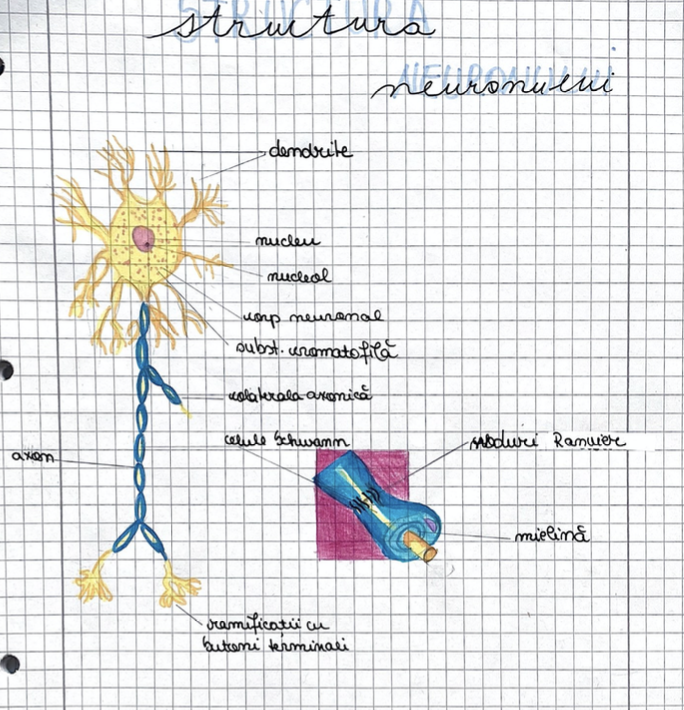 STRUCTURA
structura
NEURONULUI
neuronului
dendrite
nucleu
nucleol
corp neuronal
subst. cromatofilă
colaterala axonică
celule Schwann
noduri Ranvier
axon
mielină
ramificații cu
butoni terminali